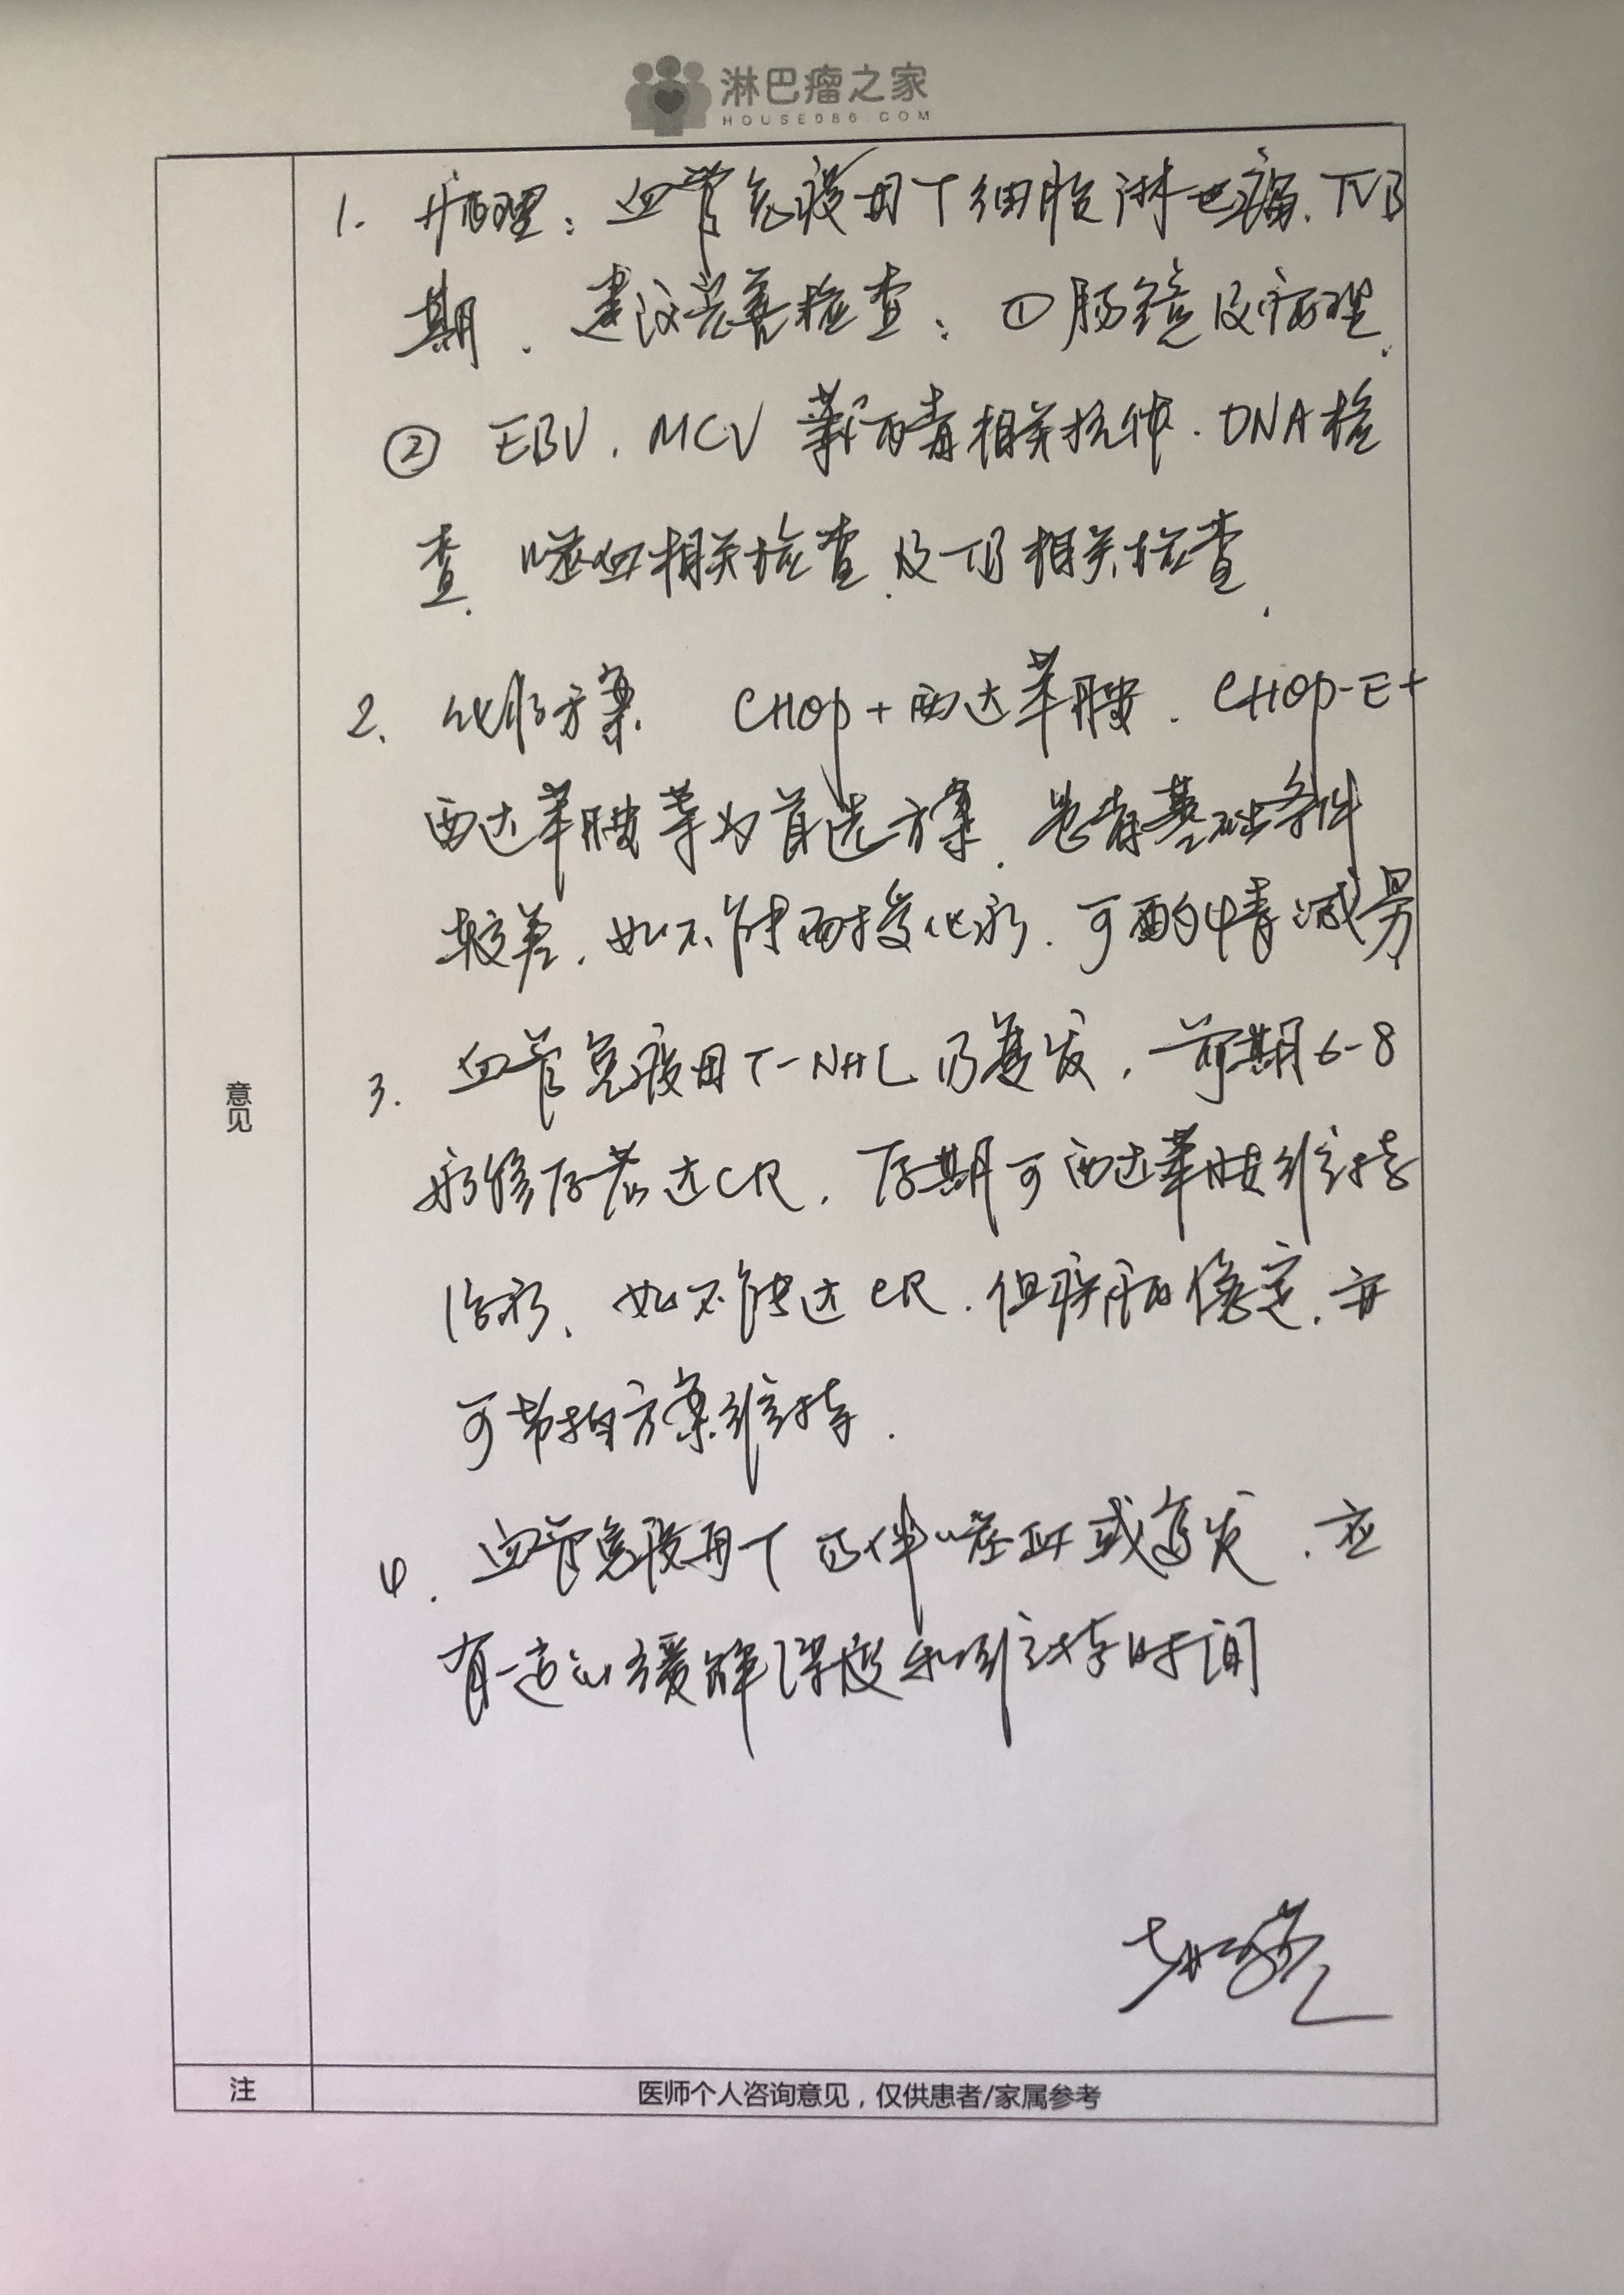 淋巴瘤之家
HOUSE086.COM
1. 病理：血管免疫母T细胞淋巴瘤. IVB
期. 建议完善检查：① 肠镜及病理.
② EBV. MCV 等病毒相关抗体. DNA检
查. 噬血相关检查. 及TB相关检查.
2. 化疗方案 CHOP+西达苯胺. CHOP-E+
西达苯胺等为首选方案. 患者基础条件
较差. 如不能耐受化疗. 可酌情减量
3. 血管免疫母T-NHL 易复发, 前期6-8
疗程后若达CR, 后期可西达苯胺维持
治疗、如不能达CR. 但疾病稳定. 亦
可节拍方案维持.
4. 血管免疫母T 易伴噬血或复发. 应
有一定的缓解深度和维持时间
意见
注
医师个人咨询意见，仅供患者/家属参考